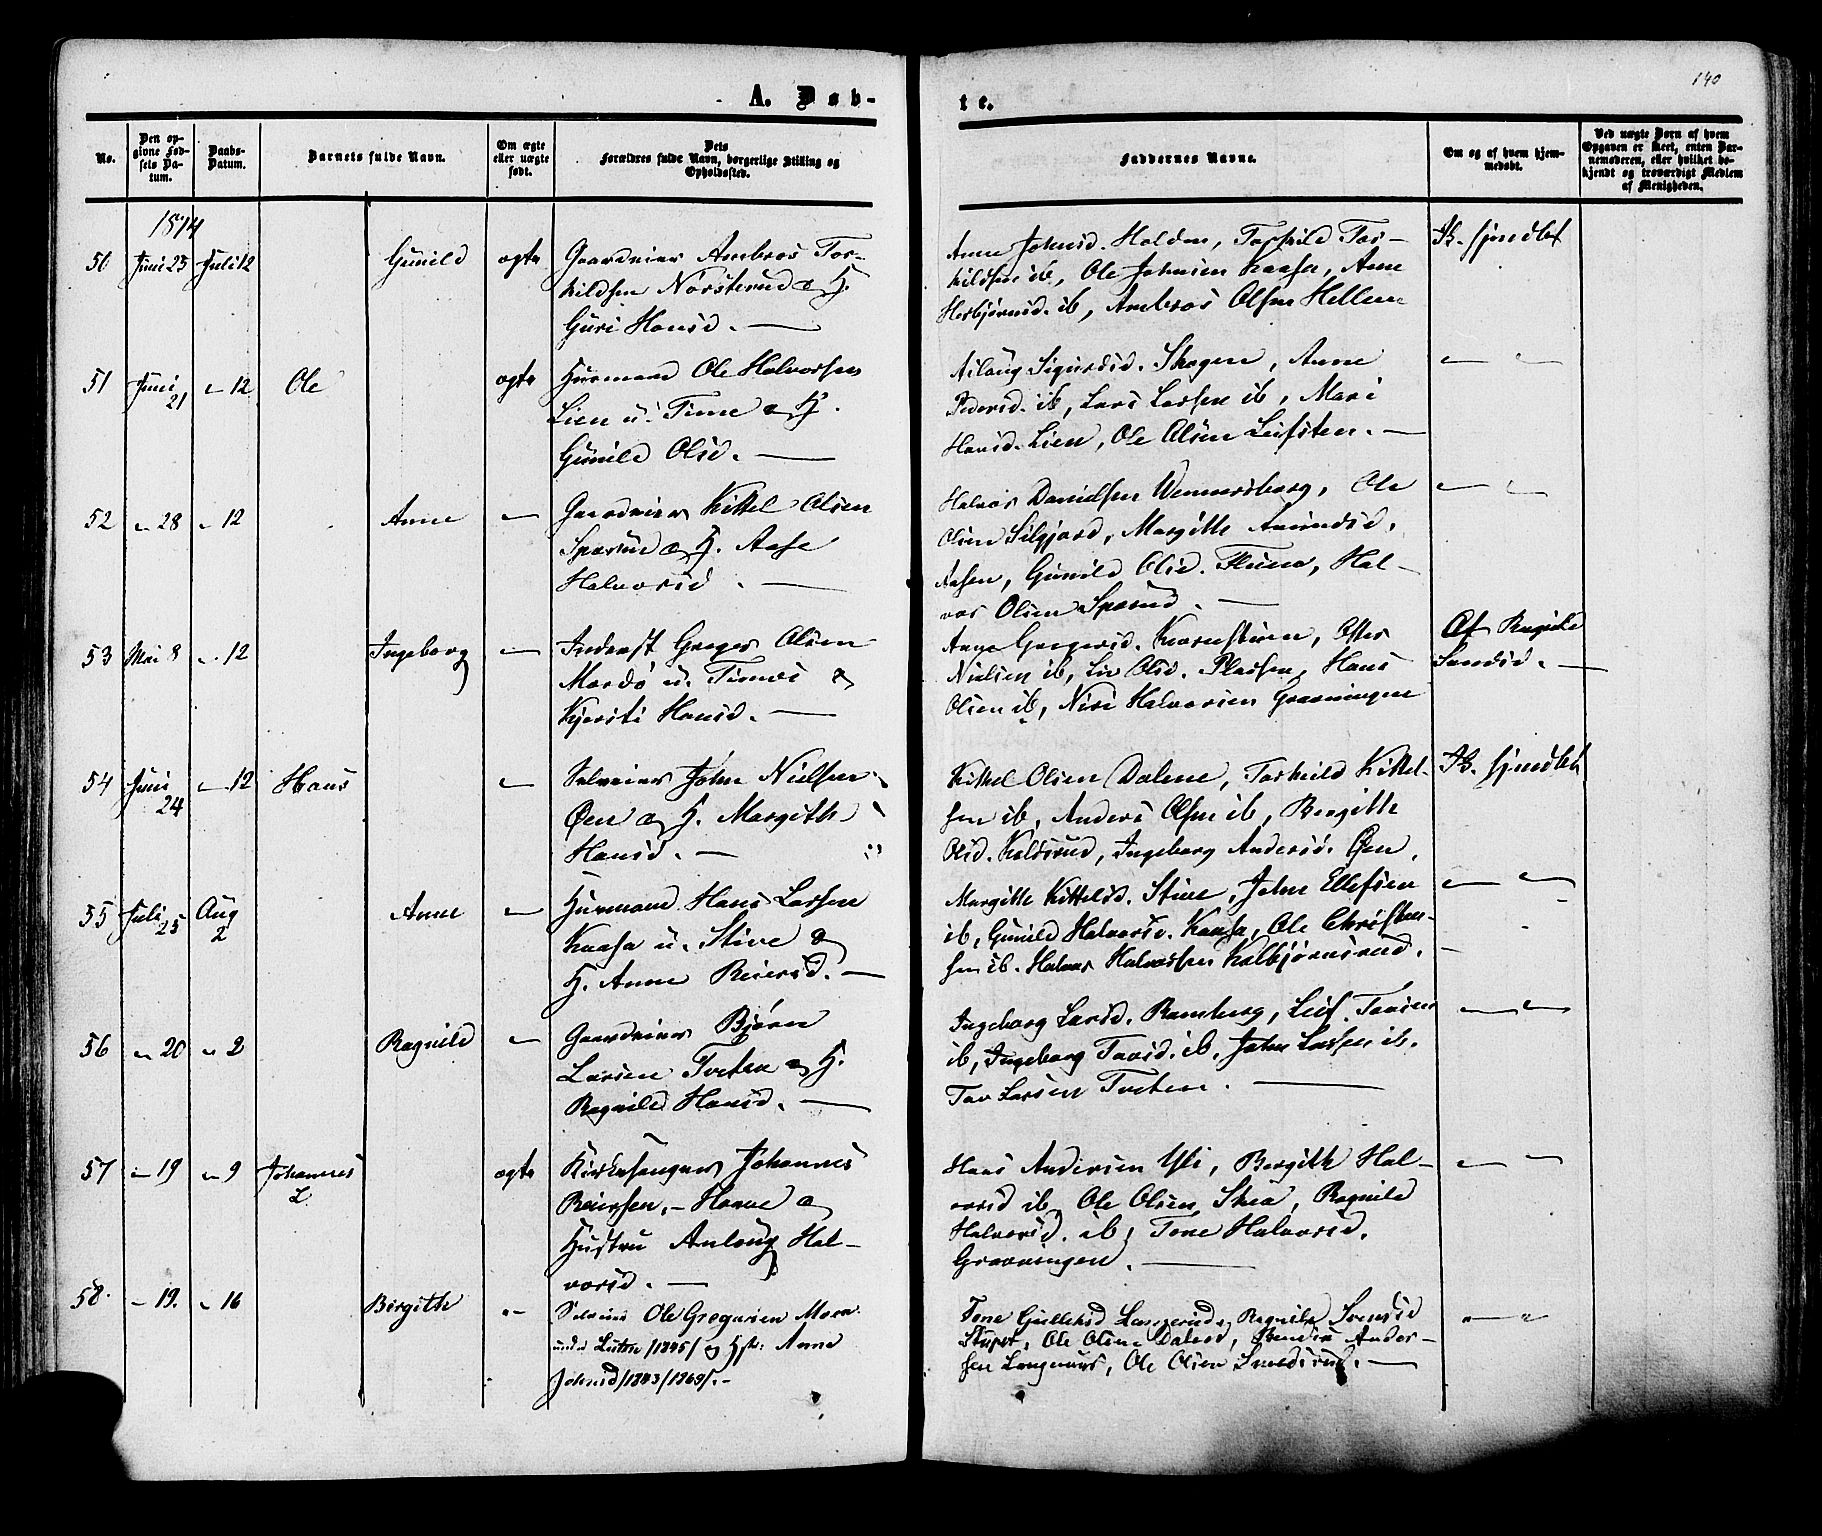 140
A. Døb-
te.
No.
Den op-
givne Fød-
sels Da-
tum.
Daabs-
Datum.
Barnets fulde Navn.
Om ægte
eller uægte
født.
Dets
Forældres fulde Navn, borgerlige Stilling og
Opholdssted.
Faddernes Navne.
Om og af hvem hjem-
medøbt.
Ved uægte Børn af hvem
Opgaven er skeet, enten Bar-
nemoderen, eller hvilket be-
kjendt og troværdigt Medlem
af Menigheden.
1874
50 Juni 23 Juli 12 Gunild ægte
Gaardeier Ambros Tor-
kildsen Norsterud og H.
Guri Hansd. —
Anne Johnsd. Holden, Torkild Tor-
kildsen ib, Ole Johnsen Kaasa, Anne
Herbjørnsd. ib, Ambros Olsen Hellem
Ib. hjemdøbt
51 Juni 21 " 12 Ole ægte
Husmand Ole Halvorsen
Lien u. Tinne og H.
Gunild Olsd. —
Aslaug Sigurdsd. Skogen, Anne
Pedersd. ib, Lars Larsen ib, Mari
Hansd. Lien, Ole Olsen Leifsten. —
" "
52 " 28 " 12 Anne "
Gaardeier Kittel Olsen
Sperud og H. Aase
Halvorsd. —
Halvor Danielsen Wennersborg, Ole
Olsen Silgjord, Margith Amundsd.
Aasen, Gunild Olsd. Fluna, Hal-
vor Olsen Sperud. —
" "
53 Mai 8 " 12 Ingeborg "
Inderst Greger Olsen
Mordø u. Tinnes og
Kjersti Hansd. —
Anne Gregersd. Kornstuen,
Nielsen ib, Liv Olsd. Pladsen, Hans
Olsen ib, Niri Halvorsen Graaningen
Af Ragnild
—
54 Juni 24 " 12 Hans "
Selveier John Nielsen
Øen og H. Margith
Hansd. —
Kittel Olsen Dalene, Torkild Kittel-
sen ib, Anders Olsen ib, Bergith
Olsd. Kolsrud, Ingeborg Andersd. Øen,
Ib. hjemdøbt
55 Juli 25 Aug 2 Anne "
Husmand Hans Larsen
Kaasa u. Stive og
H. Anne Reiersd. —
Margith Kittelsd. Stive, John Ellefsen
ib, Gunild Halvorsd. Kaasa, Ole Christen-
sen ib. Halvor Halvorsen Kolbjørnsrud. —
" "
56 " 20 " 2 Ragnild "
Gaardeier Bjørn
Larsen Tveten og H.
Ragnild Hansd. —
Ingeborg Larsd. Ramberg, Leif Tovsen
ib, Ingeborg Tovsd. ib, John Larsen ib.
Tov Larsen Tveten. —
" "
57 " 19 " 9 Johannes ægte
L.
Kirkesanger Johannes
Reiersen, — Hanne og
Hustru Anlaug Hal-
vorsd. —
Hans Andersen Yli, Bergith Hal-
vorsd ib, Ole Olsen Skea, Ragnild
Halvorsd. ib, Tone Halvorsd.
Graaningen. —
" "
58. " 19. " 16 Birgith "
Selveier Ole Gregersen Moen
under Listen /1845/ og Hst: Anne
Johnsd /1843/1869/. —
Tone Gulleksd Langerud, Ragnild Svensd
Stupet, Ole Olsen Daleød, Sander Ander-
sen Langenaas, Ole Olsen Smedsrud. —
" "